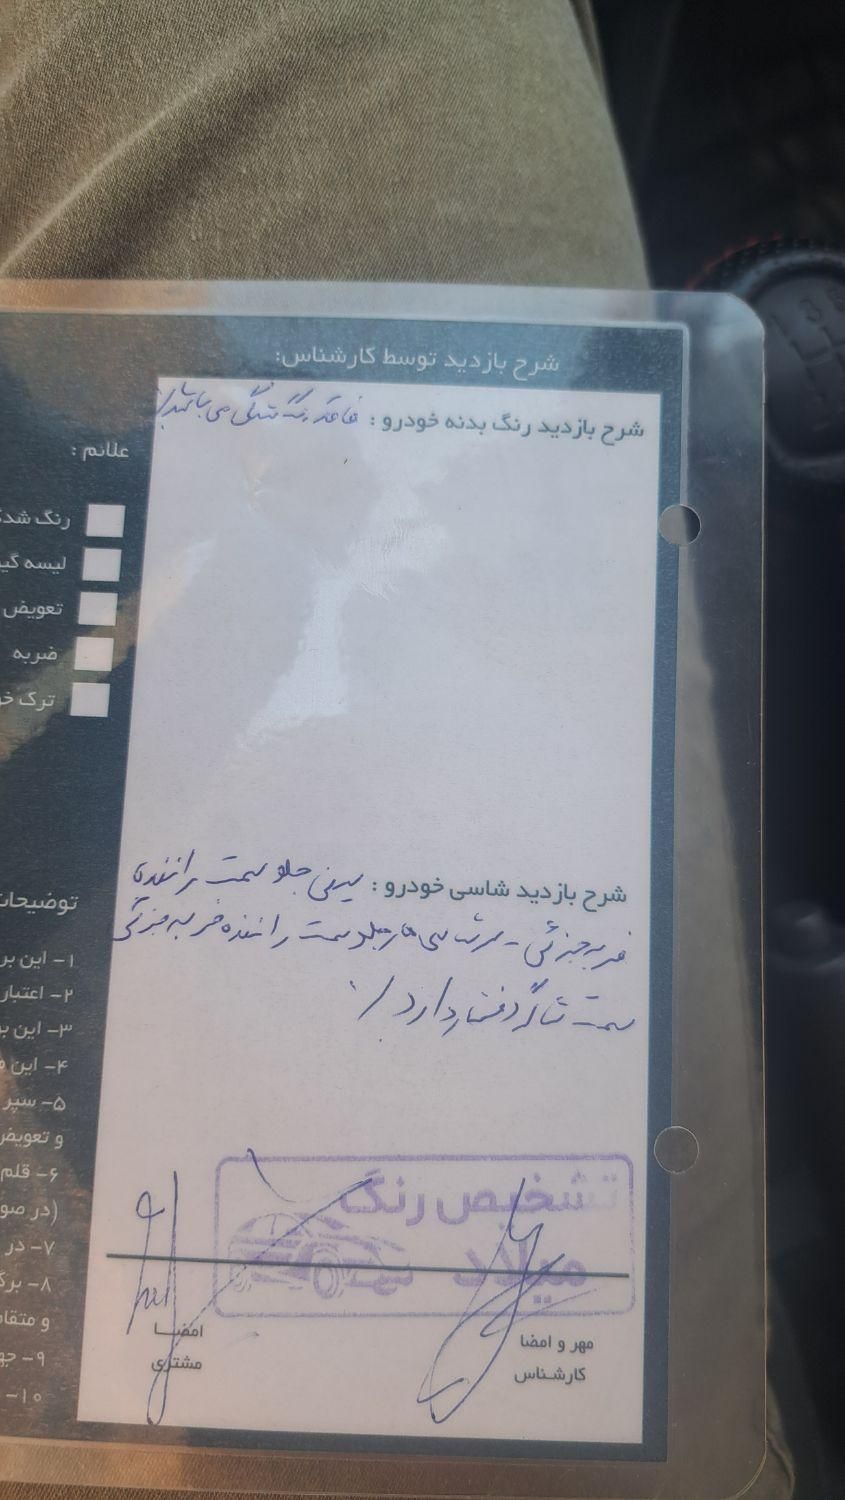 شرح بازدید توسط کارشناس:
شرح بازدید رنگ بدنه خودرو : فاقد رنگ شدگی می باشد/.
علائم :
رنگ شد
لیسه گی
تعویض
ضربه
ترک خ
شرح بازدید شاسی خودرو : سینی جلو سمت راننده
ضربه جزئی - سرشاسی جلو سمت راننده ضربه جزئی
سمت شاگرد فشار دارد/.
توضیحات
۱- این بر
۲- اعتبار
۳- این بر
۴- این
۵- سپر
و تعویض
۶- قلم
(در صو
۷- در
۸- برگ
و متقا
۹- جه
۱۰-
تشخیص رنگ
میلاد
مهر و امضا
کارشناس
امضا
مشتری